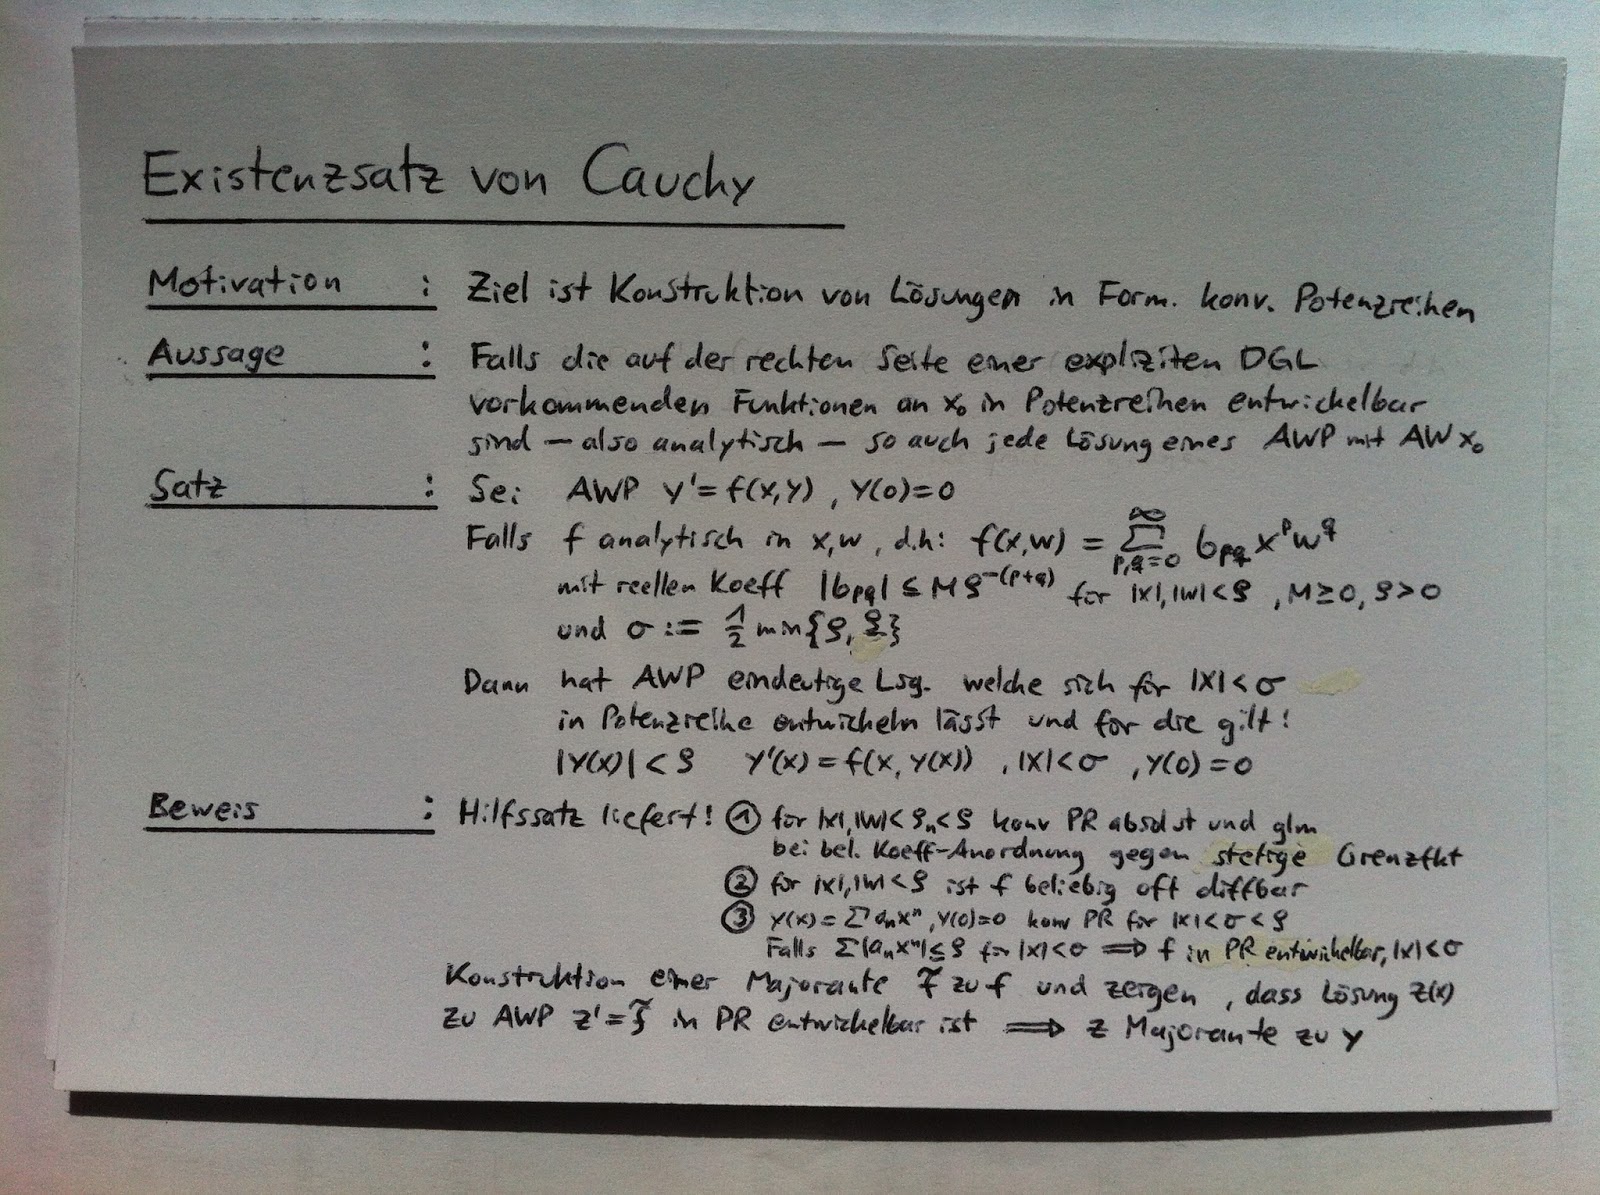 Existenzsatz von Cauchy
Motivation : Ziel ist Konstruktion von Lösungen in Form. konv. Potenzreihen
Aussage : Falls die auf der rechten Seite einer expliziten DGL
vorkommenden Funktionen an x₀ in Potenzreihen entwickelbar
sind – also analytisch – so auch jede Lösung eines AWP mit AW x₀
Satz : Sei AWP y'=f(x,y), y(0)=0
Falls f analytisch in x,w, d.h: f(x,w) = ∑_{p,q=0}^∞ b_{pq} x^p w^q
mit reellen Koeff |b_{pq}| ≤ Mϱ^{-(p+q)} für |x|,|w|<ϱ, M≥0, ϱ>0
und σ := ½ min{ϱ,
Dann hat AWP eindeutige Lsg. welche sich für |x|<σ
in Potenzreihe entwickeln lässt und für die gilt!
|y(x)|<ϱ y'(x)=f(x,y(x)), |x|<σ, y(0)=0
Beweis : Hilfssatz liefert! ① für |x|,|w|<ϱₙ<ϱ konv PR absolut und glm
bei bel. Koeff-Anordnung gegen stetige Grenzfkt
② für |x|,|w|<ϱ ist f beliebig oft diffbar
③ y(x)=∑aₙxⁿ, y(0)=0 konv PR für |x|<σ<ϱ
Falls ∑|aₙxⁿ|≤ϱ für |x|<σ ⟹ f in PR entwickelbar, |x|<σ
Konstruktion einer Majorante f̃ zu f und zeigen, dass Lösung z(x)
zu AWP z'=f̃ in PR entwickelbar ist ⟹ z Majorante zu y